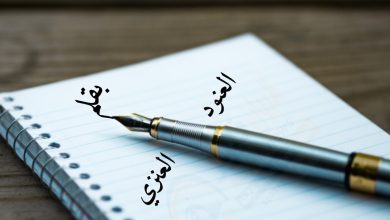 بقلم
العنود
العنزي